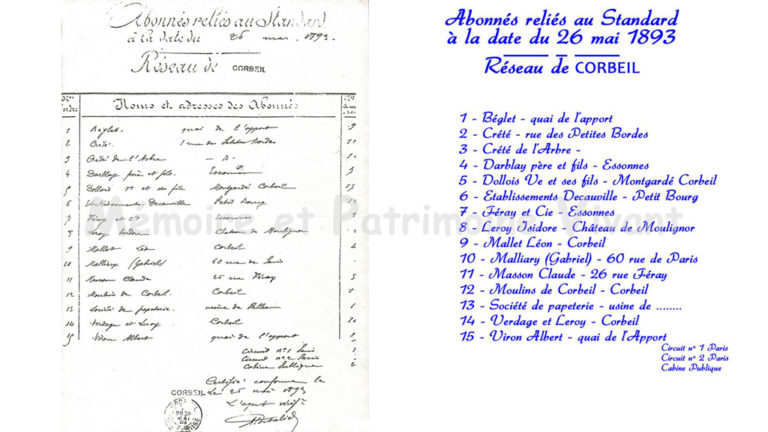 Abonnés reliés au Standard
à la date du 26 mai 1893.
Réseau de CORBEIL
Noms et adresses des Abonnés
1 Béglet. quai de l'apport
2 Crété. 1 rue des Petites Bordes
3 Crété de l'Arbre
4 Darblay père et fils. Essonnes
5 Dollois Ve et ses fils Montgardé Corbeil
6 Etablissements Decauville Petit Bourg
7 Féray et Cie Essonnes
8 Leroy Isidore Château de Moulignon
9 Mallet Léon Corbeil
10 Malliary (Gabriel) 60 rue de Paris
11 Masson Claude 26 rue Féray
12 Moulins de Corbeil Corbeil
13 Société de papeterie usine de
14 Verdage et Leroy Corbeil
15 Viron Albert quai de l'apport
Circuit n° 1 Paris
Circuit n° 2 Paris
Cabine Publique
Certifié conforme
Le 26 mai 1893
L'agent
CORBEIL
Abonnés reliés au Standard
à la date du 26 mai 1893
Réseau de CORBEIL
1 - Béglet - quai de l'apport
2 - Crété - rue des Petites Bordes
3 - Crété de l'Arbre -
4 - Darblay père et fils - Essonnes
5 - Dollois Ve et ses fils - Montgardé Corbeil
6 - Etablissements Decauville - Petit Bourg
7 - Féray et Cie - Essonnes
8 - Leroy Isidore - Château de Moulignor
9 - Mallet Léon - Corbeil
10 - Malliary (Gabriel) - 60 rue de Paris
11 - Masson Claude - 26 rue Féray
12 - Moulins de Corbeil - Corbeil
13 - Société de papeterie - usine de ........
14 - Verdage et Leroy - Corbeil
15 - Viron Albert - quai de l'Apport
Circuit n° 1 Paris
Circuit n° 2 Paris
Cabine Publique
Mémoire et Patrimoine Vivant